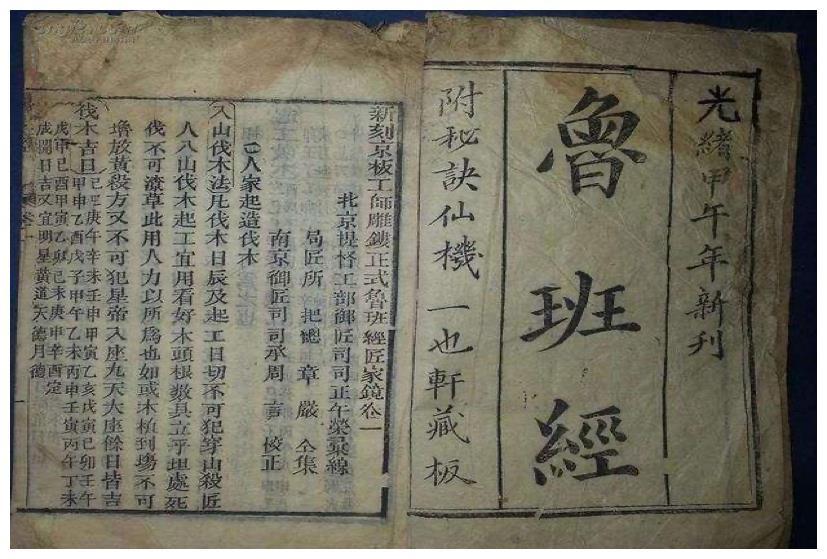 光緒甲午年新刊
魯班經
附秘訣仙機 一也軒藏板
新刻京板工師雕鏤正式魯班經匠家鏡卷一
北京提督工部御匠司司正午榮彙線
局匠所把總章嚴仝集
南京御匠司司承周言校正
人家起造伐木
入山伐木法凡伐木日辰及起工日切不可犯穿山殺匠
人入山伐木起工宜用看好木頭根數具立平坦處死
伐不可潦草此用人力以所爲也如或木植到塲不可
堆放黃殺方又不可犯皇帝入座九天大座餘日皆吉
伐木吉日己巳庚午辛未壬申甲寅乙亥戊寅己卯壬午
甲申乙酉戊子甲午乙未丙申壬寅丙午丁未
戊申己酉甲寅乙卯己未庚申辛酉定
成開日吉又宜明星黃道天德月德